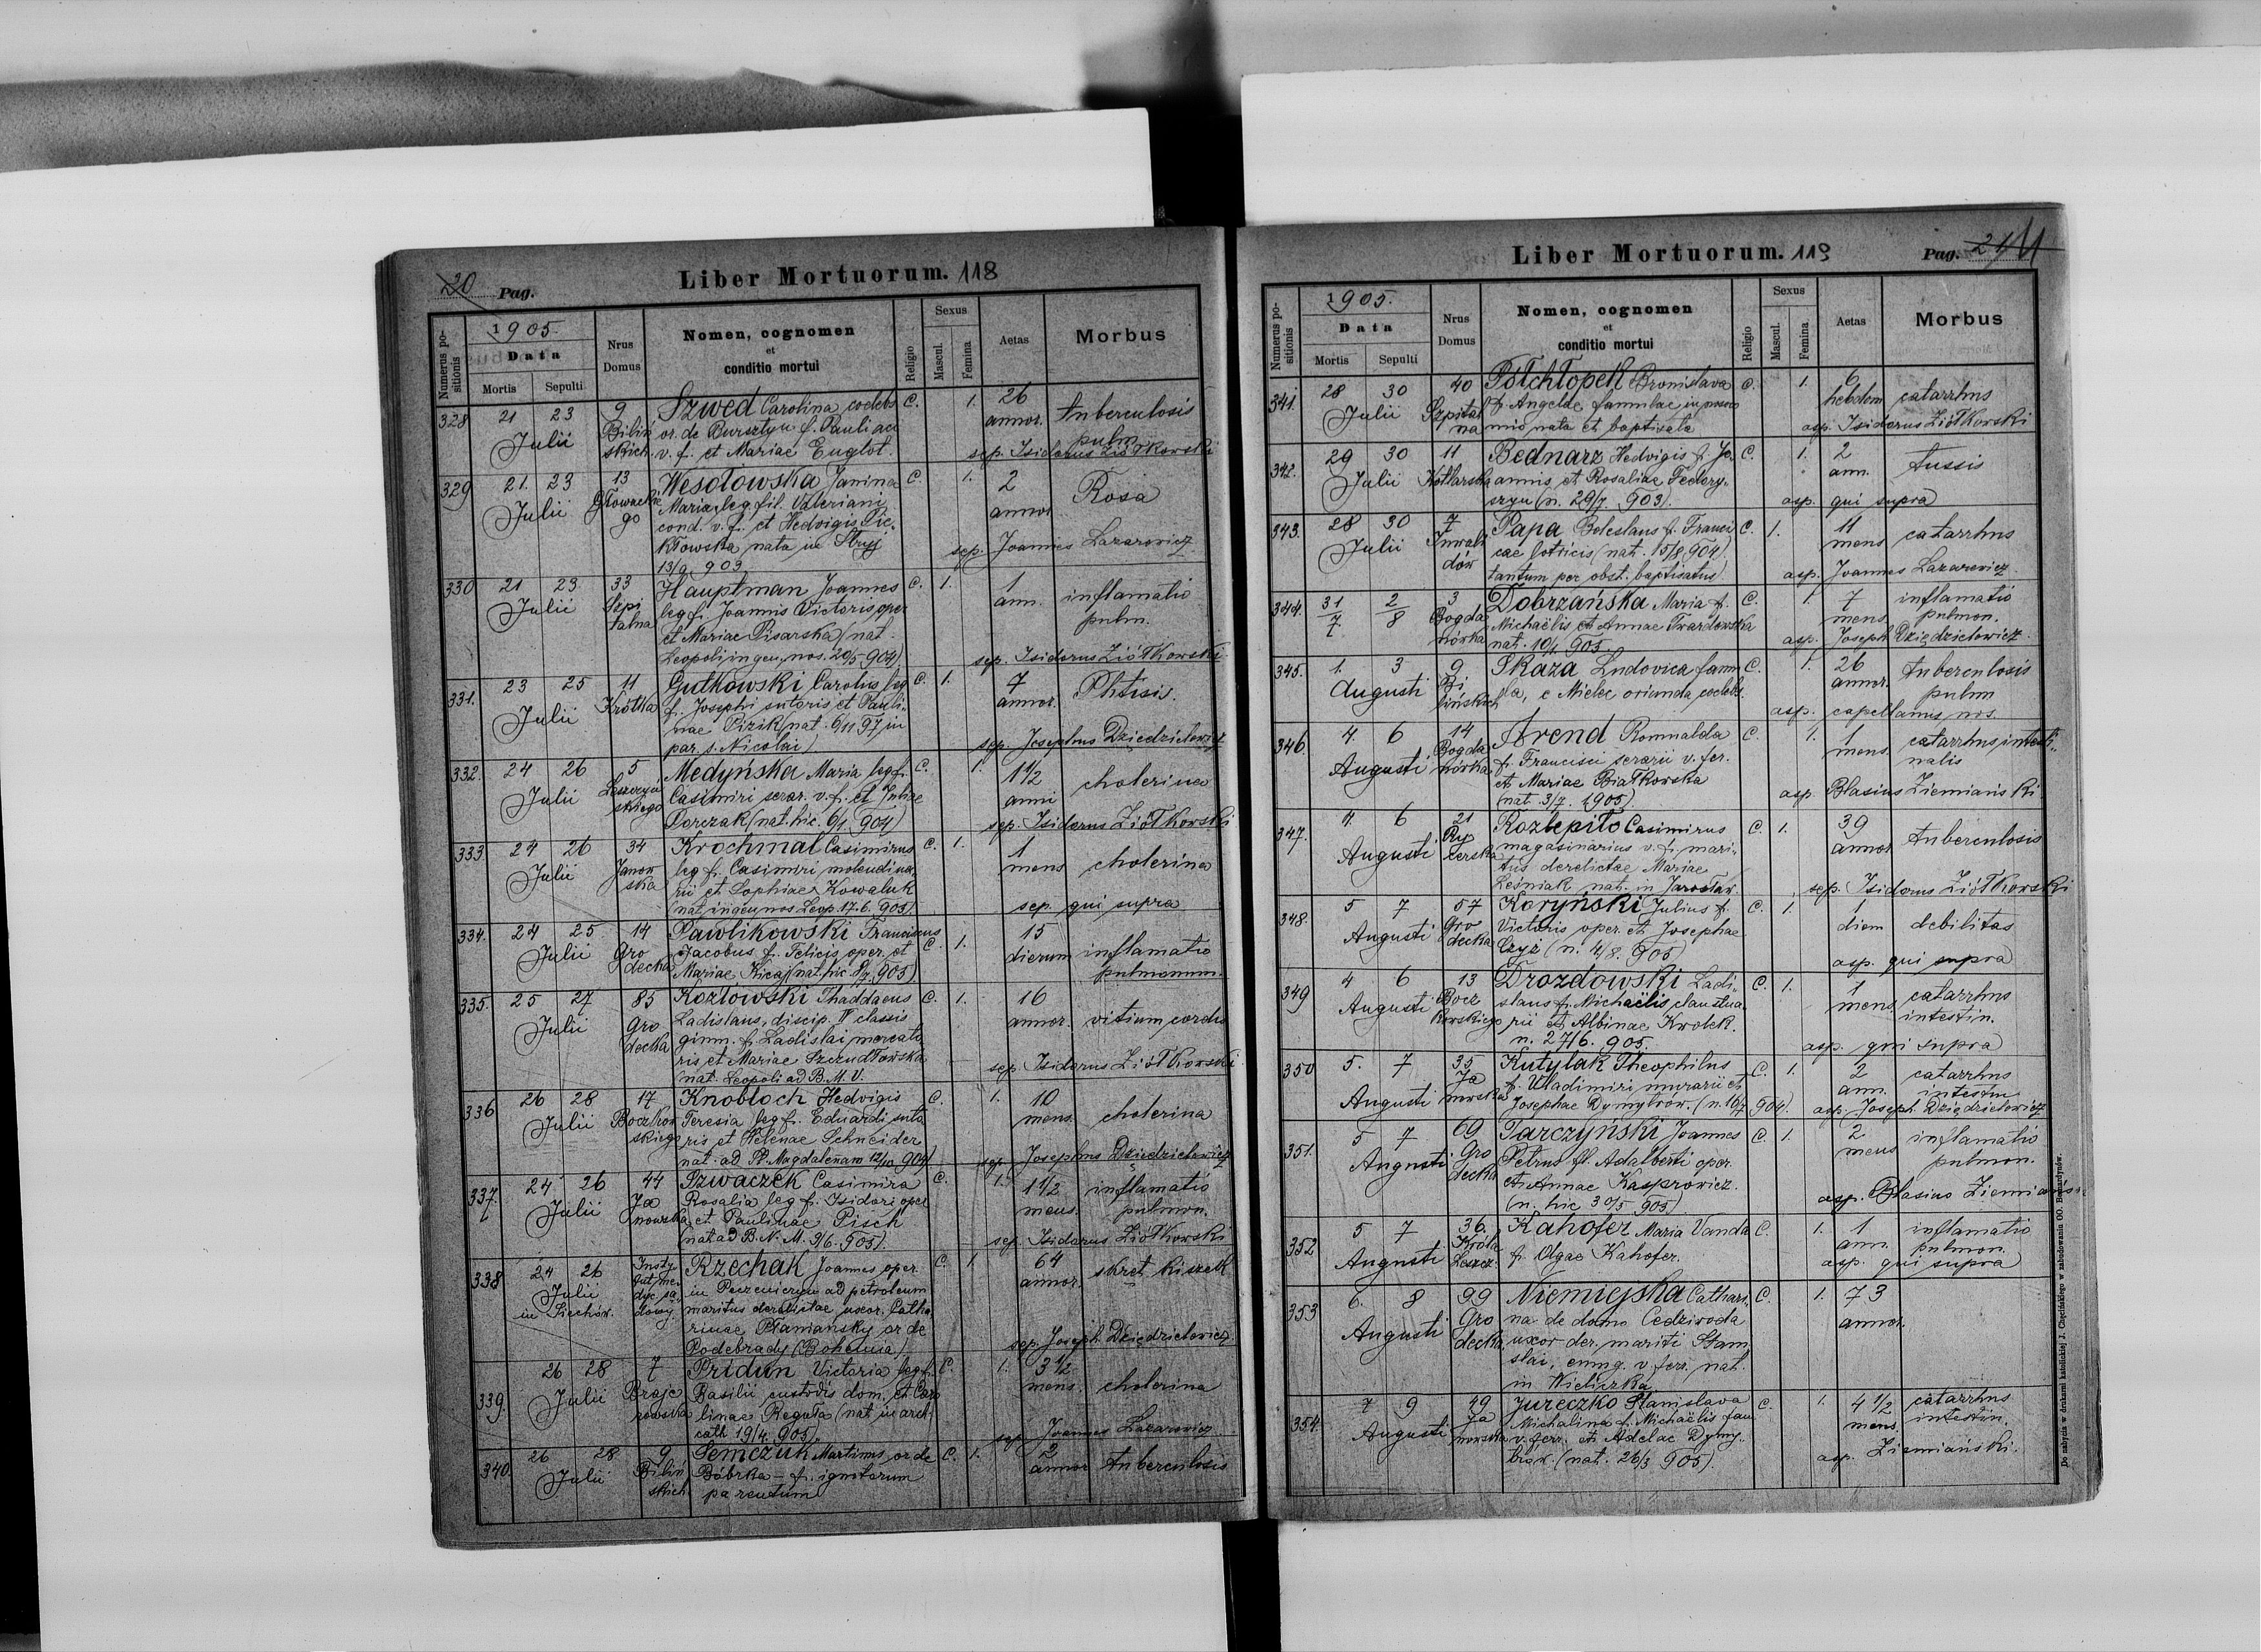 20 Pag.
Liber Mortuorum. 118
Numerus positionis
1905.
Data
Mortis
Sepulti
Nrus Domus
Nomen, cognomen
et
conditio mortui
Religio
Sexus
Mascul.
Femina
Aetas
Morbus
328 21 23 9 Szwed Carolina coelebs C. 1. 26
Julii Biliń or. de Bursztyn f. Pauli ad annor. tuberculosis
skich. v. f. et Mariae Euglot. pulm.
sep. Isidorus Ziółkowski
329 21. 23 13 Wesołowska Janina C. 1. 2
Julii Głowackie Maria, leg. fil. Valeriani annor Rosa
go cond. v. f. et Hedvigis Pie
kłowska nata in Stryj sep. Joannes Lazarewicz
13/9 903
330 21 23 33 Hauptman Joannes C. 1. 1
Julii Szpi leg. f. Joannis Victoris oper ann. inflamatio
talna et Mariae Pisarska (nat. pulm.
Leopoli in gen. nos. 20/5 904) sep. Isidorus Ziółkowski
331. 23 25 11 Gutkowski Carolus leg C. 1. 7
Julii Krótka f. Josephi sutoris et Pauli annor. Phtisis.
nae Pizik (nat. 6/11 97 in
par. s. Nicolai) sep. Josephus Dziędzielewicz
332. 24 26 5 Medyńska Maria leg. f. C. 1. 1 1/2
Julii Leszczyń Casimiri serar. v. f. et Juliae anni cholerina
skiego Porczak (nat. hic. 6/1 904) sep. Isidorus Ziółkowski
333. 24 26 34 Krochmal Casimirus C. 1. 1
Julii Janow leg. f. Casimiri molendina mens cholerina
ska rii et Sophiae Kowaluk
(nat. in gen. nos Leop. 17. 6. 905) sep. qui supra
334. 24 25 14 Pawlikowski Franciscus C. 1. 15
Julii Gro Jacobus f. Felicis oper. et dierum inflamatio
decka Mariae Kicaj (nat. hic 8/7. 905) pulmonum.
335. 25 27 85 Kozłowski Thaddaeus C. 1. 16
Julii Gro Ladislaus, discip. IV classis annor. vitium cordis
decka gimn. f. Ladislai mercato
ris et Mariae Szczudłowska
(nat. Leopoli ad B. M. V. sep. Isidorus Ziółkowski
336 26 28 17 Knobloch Hedvigis C. 1. 10
Julii Boczkow Teresia leg. f. Eduardi suto mens. cholerina
skiego ris et Helenae Schneider
nat. ad St. Magdalenam 12/10 904) sep. Josephus Dziędzielewicz
337. 24 26 44 Szwaczek Casimira C. 1. 1 1/2 inflamatio
Julii Ja Rosalia leg. f. Isidori oper mens. pulmon.
nowska et Paulinae Pisch
(nat ad B. N. M. 9/6. 905). sep. Isidorus Ziółkowski
338 24 26 Insty Rzechak Joannes oper. C. 1 64
Julii tut me in Peczeniczyn ad petroleum annor. skręt kiszek
in Siechów. dyc są maritus derelictae uxor. Catha
dowy. rinae Planiansky or de
Podebrady (Bohemia) sep. Joseph Dziędzielewicz.
339. 26 28 7 Pridun Victoria leg. f. C. 1. 3 1/2
Julii Braje Basilii custodis dom. et Caro mens. cholerina
rowska linae Reguła (nat. in arch
cath 19/4. 905). sep. Joannes Lazarewicz
340. 26 28 9 Semczuk Martinus or de C. 1. 2
Julii Biliń Bóbrka – f. ignotorum annor tuberculosis
skich parentum
Liber Mortuorum. 119
Pag. 21
Numerus positionis
1905.
Data
Mortis
Sepulti
Nrus Domus
Nomen, cognomen
et
conditio mortui
Religio
Sexus
Mascul.
Femina
Aetas
Morbus
341. 28 30 40 Półchłopek Bronislava C. 1. 6
Julii Szpital f. Angelae famulae in hebdom catarrhus
na nata et baptisata asp. Isidorus Ziółkowski
342. 29 30 11 Bednarz Hedvigis f. Jo C. 1. 2
Julii Kotlarska annis et Rosaliae Fedory ann. tussis
szyn (n. 29/7. 903). asp. qui supra
343. 28 30 7 Papa Boleslaus f. Franci C. 1. 11
Julii Inwali cae lotricis (nat. 15/8 904) mens catarrhus
dów tantum per obst. baptisatus) asp. Joannes Lazarewicz
344. 31/7 2/8 3 Dobrzańska Maria f. C. 1. 7 inflamatio
Bogda Michaëlis et Annae Twardowska mens pulmon.
nówka nat. 10/1 905. asp. Joseph Dziędzielewicz
345. 1. 3 9 Skaza Ludovica famu C. 1. 26 tuberculosis
Augusti Bi la, e Mielec oriunda coelebs. annor. pulm
lińskich asp. capellanus nos.
346. 4. 6 14 Arend Romualda C. 1. 1 catarrhus intesti
Augusti Bogda f. Francisci serarii v. fer. mens. nalis
nówka et Mariae Białkowska
(nat. 3/7. 1905) asp. Blasius Ziemiański
347. 4. 6 21 Rozlepiło Casimirus C. 1. 39
Augusti Ry magasinarius v. f. mari annor tuberculosis
cerska tus derelictae Mariae
Leśniak nat. in Jarosław. sep. Isidorus Ziółkowski
348. 5 7 57 Koryński Julius f. C. 1. 1
Augusti Gro Victoris oper. et Josephae diem debilitas
decka Czyż (n. 4/8. 905) asp. qui supra
349 4 6 13 Drozdowski Ladi C. 1. 1 catarrhus
Augusti Bocz slaus f. Michaëlis claustra mens. intestin.
kowskiego rii et Albinae Krolek.
n. 27/6. 905. asp. qui supra
350 5. 7 35 Kutylak Theophilus C. 1. 2 catarrhus
Augusti Ja f. Vladimiri murarii et ann. intestin
nowska Josephae Dymytrów. (n. 10/7 904) asp. Joseph Dziędzielewicz
351. 5 7 69 Tarczyński Joannes C. 1. 2 inflamatio
Augusti Gro Petrus fl. Adalberti oper. mens pulmon.
decka et Annae Kasprowicz.
(n. hic 30/5 905) asp. Blasius Ziemiański
352 5 7 36. Kahofer Maria Vanda C. 1. 1 inflamatio
Augusti Króla f. Olgae Kahofer. ann. pulmon.
Leszcz. asp. qui supra
353 6. 8 99 Niemiejska Cathari C. 1. 73
Augusti Gro na de domo Cedziwoda annor.
decka uxor der. mariti Stani
slai, emmg. v. ferr. nat.
in Wieliczka
354. 7 9 49 Jureczko Stanislava C. 1. 4 1/2 catarrhus
Augusti Ja Michalina f. Michaëlis fam mens intestin.
nowska v. ferr. et Adelae Dymy
trów. (nat. 26/3 905). asp. Ziemiański.
Do nabycia w drukarni katolickiej J. Chęcińskiego w zabudowaniu OO. Bernardynów.